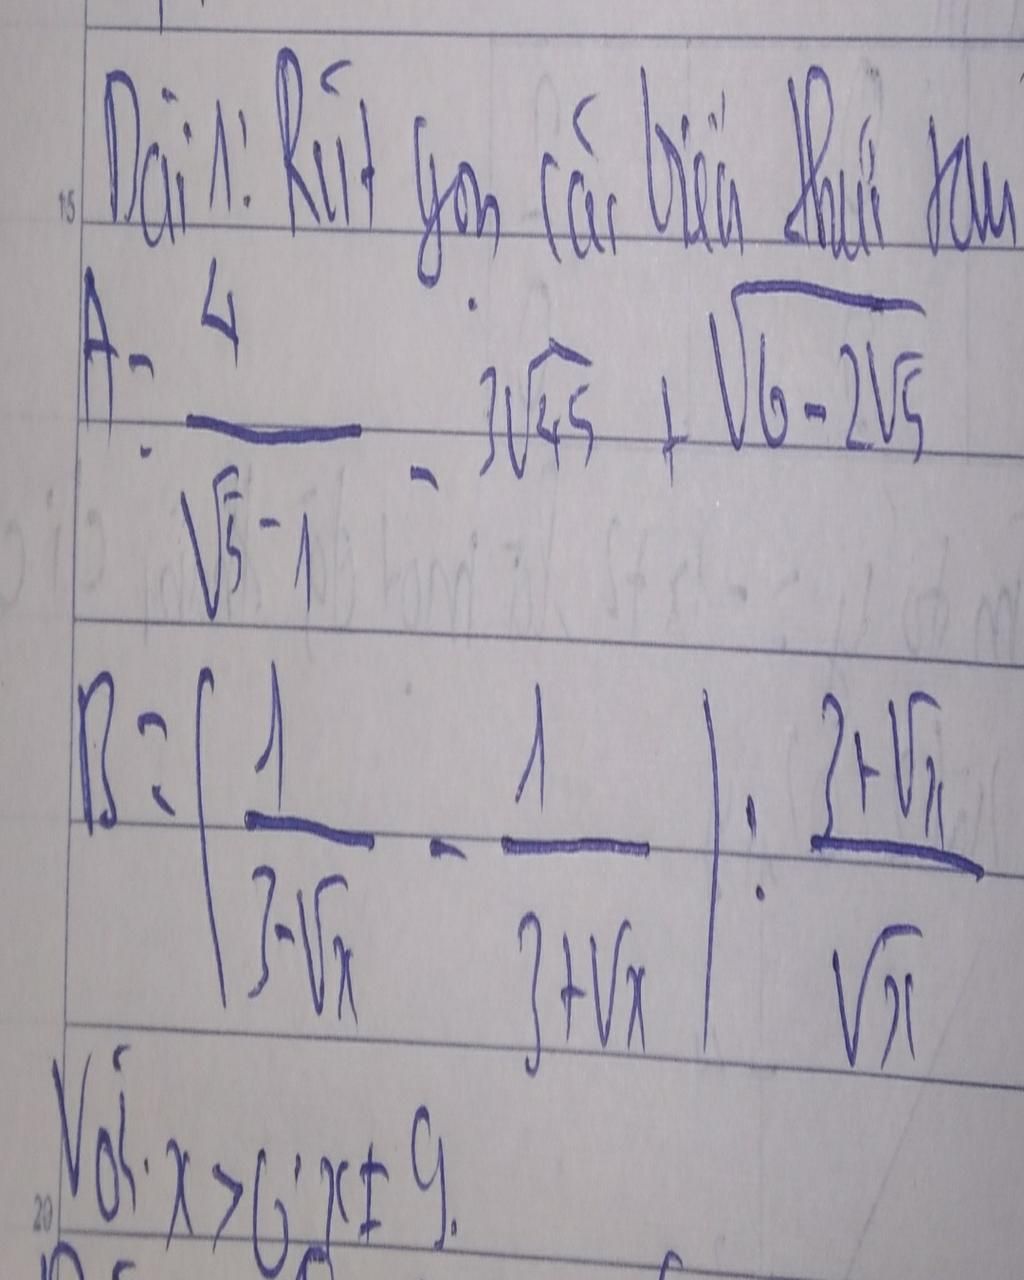 Bài 1: Rút gọn các biểu thức sau
A = 4 / (√5 - 1) - 3√45 + √(6 - 2√5)
B = (1 / (3 - √x) - 1 / (3 + √x)) : (3 + √x) / √x
Với x > 0; x ≠ 9.